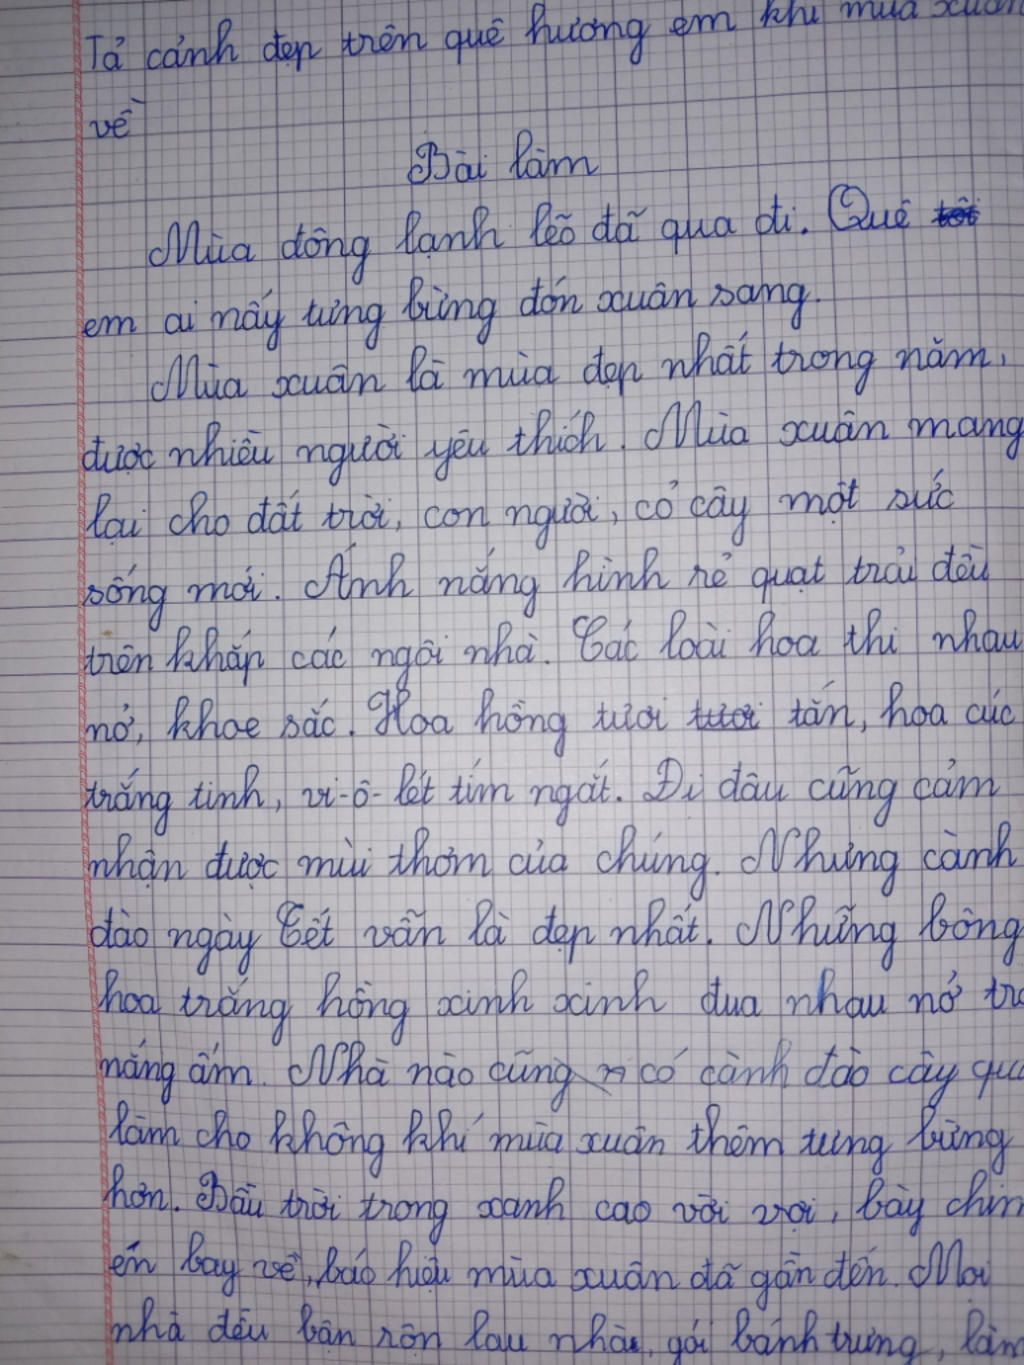 Tả cảnh đẹp trên quê hương em khi mùa xuân
về
Bài làm
Mùa đông lạnh lẽo đã qua đi. Quê tôi
em ai nấy tưng bừng đón xuân sang.
Mùa xuân là mùa đẹp nhất trong năm,
được nhiều người yêu thích. Mùa xuân mang
lại cho đất trời, con người, cỏ cây một sức
sống mới. Ánh nắng hình rẻ quạt trải đều
trên khắp các ngôi nhà. Các loài hoa thi nhau
nở, khoe sắc. Hoa hồng tươi tươi tắn, hoa cúc
trắng tinh, vi-ô-lét tím ngát. Đi đâu cũng cảm
nhận được mùi thơm của chúng. Nhưng cành
đào ngày Tết vẫn là đẹp nhất. Những bông
hoa trắng hồng xinh xinh đua nhau nở
nắng ấm. Nhà nào cũng có cành đào cây
làm cho không khí mùa xuân thêm tưng bừng
hơn. Bầu trời trong xanh cao vời vợi, bầy chim
én bay về, báo hiệu mùa xuân đã gần đến. Mọi
nhà đều bận rộn lau nhà, gói bánh trưng, làm